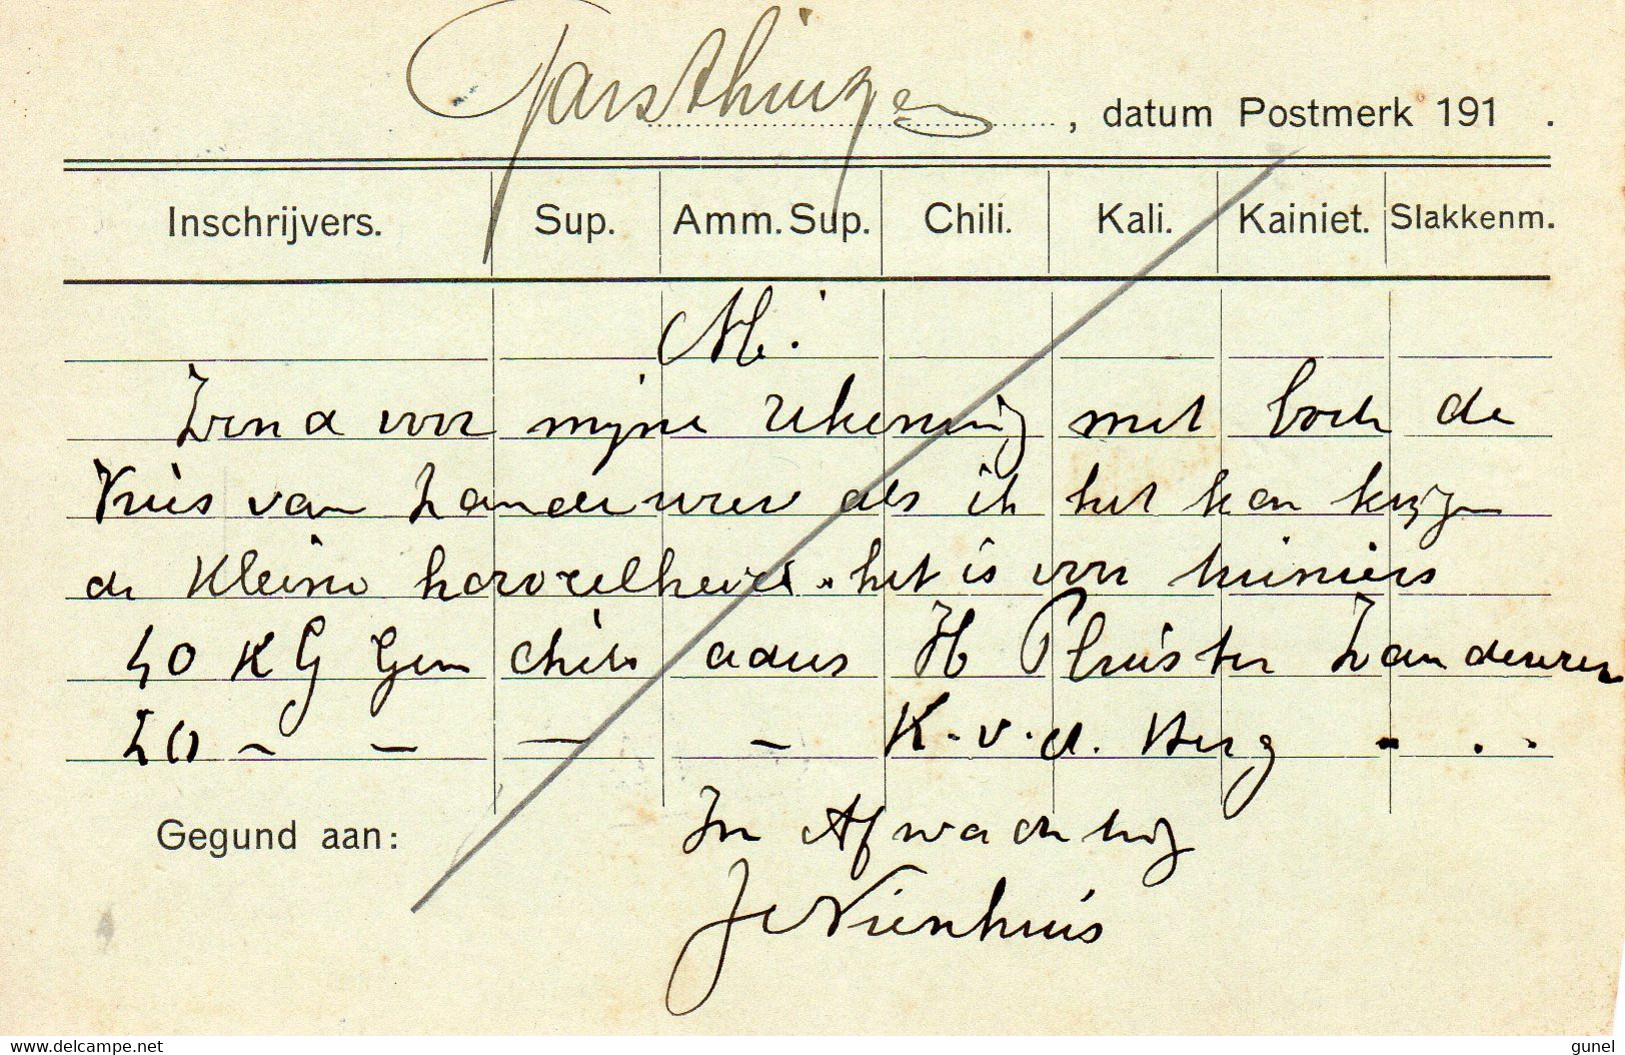 Garsthuizen, datum Postmerk 191 .
Inschrijvers. Sup. Amm. Sup. Chili. Kali. Kainiet. Slakkenm.
M.
Zend voor mijne rekening met boek de
Vries van Zandeweer als ik het kan krijgen
de Kleine hoeveelheid het is voor kuiniers
40 KG Gem chili adres H Pluister Zandeweer
20 - - - - K. v. d. Berg - . .
Gegund aan: In Afwachting
J Nienhuis
www.delcampe.net gunel